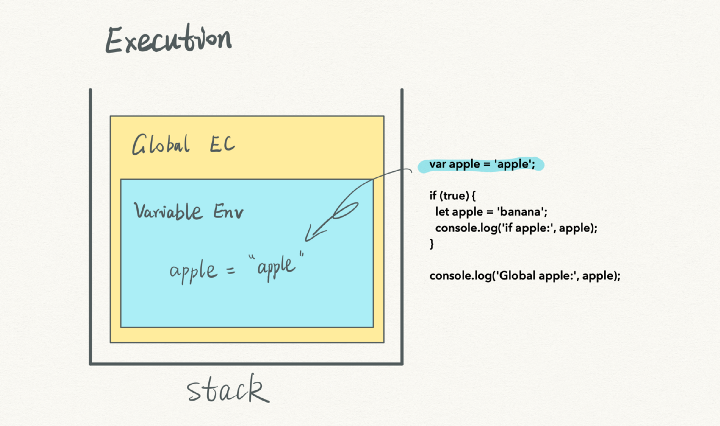 Execution
Global EC
Variable Env
apple = "apple"
stack
var apple = 'apple';
if (true) {
let apple = 'banana';
console.log('if apple:', apple);
}
console.log('Global apple:', apple);